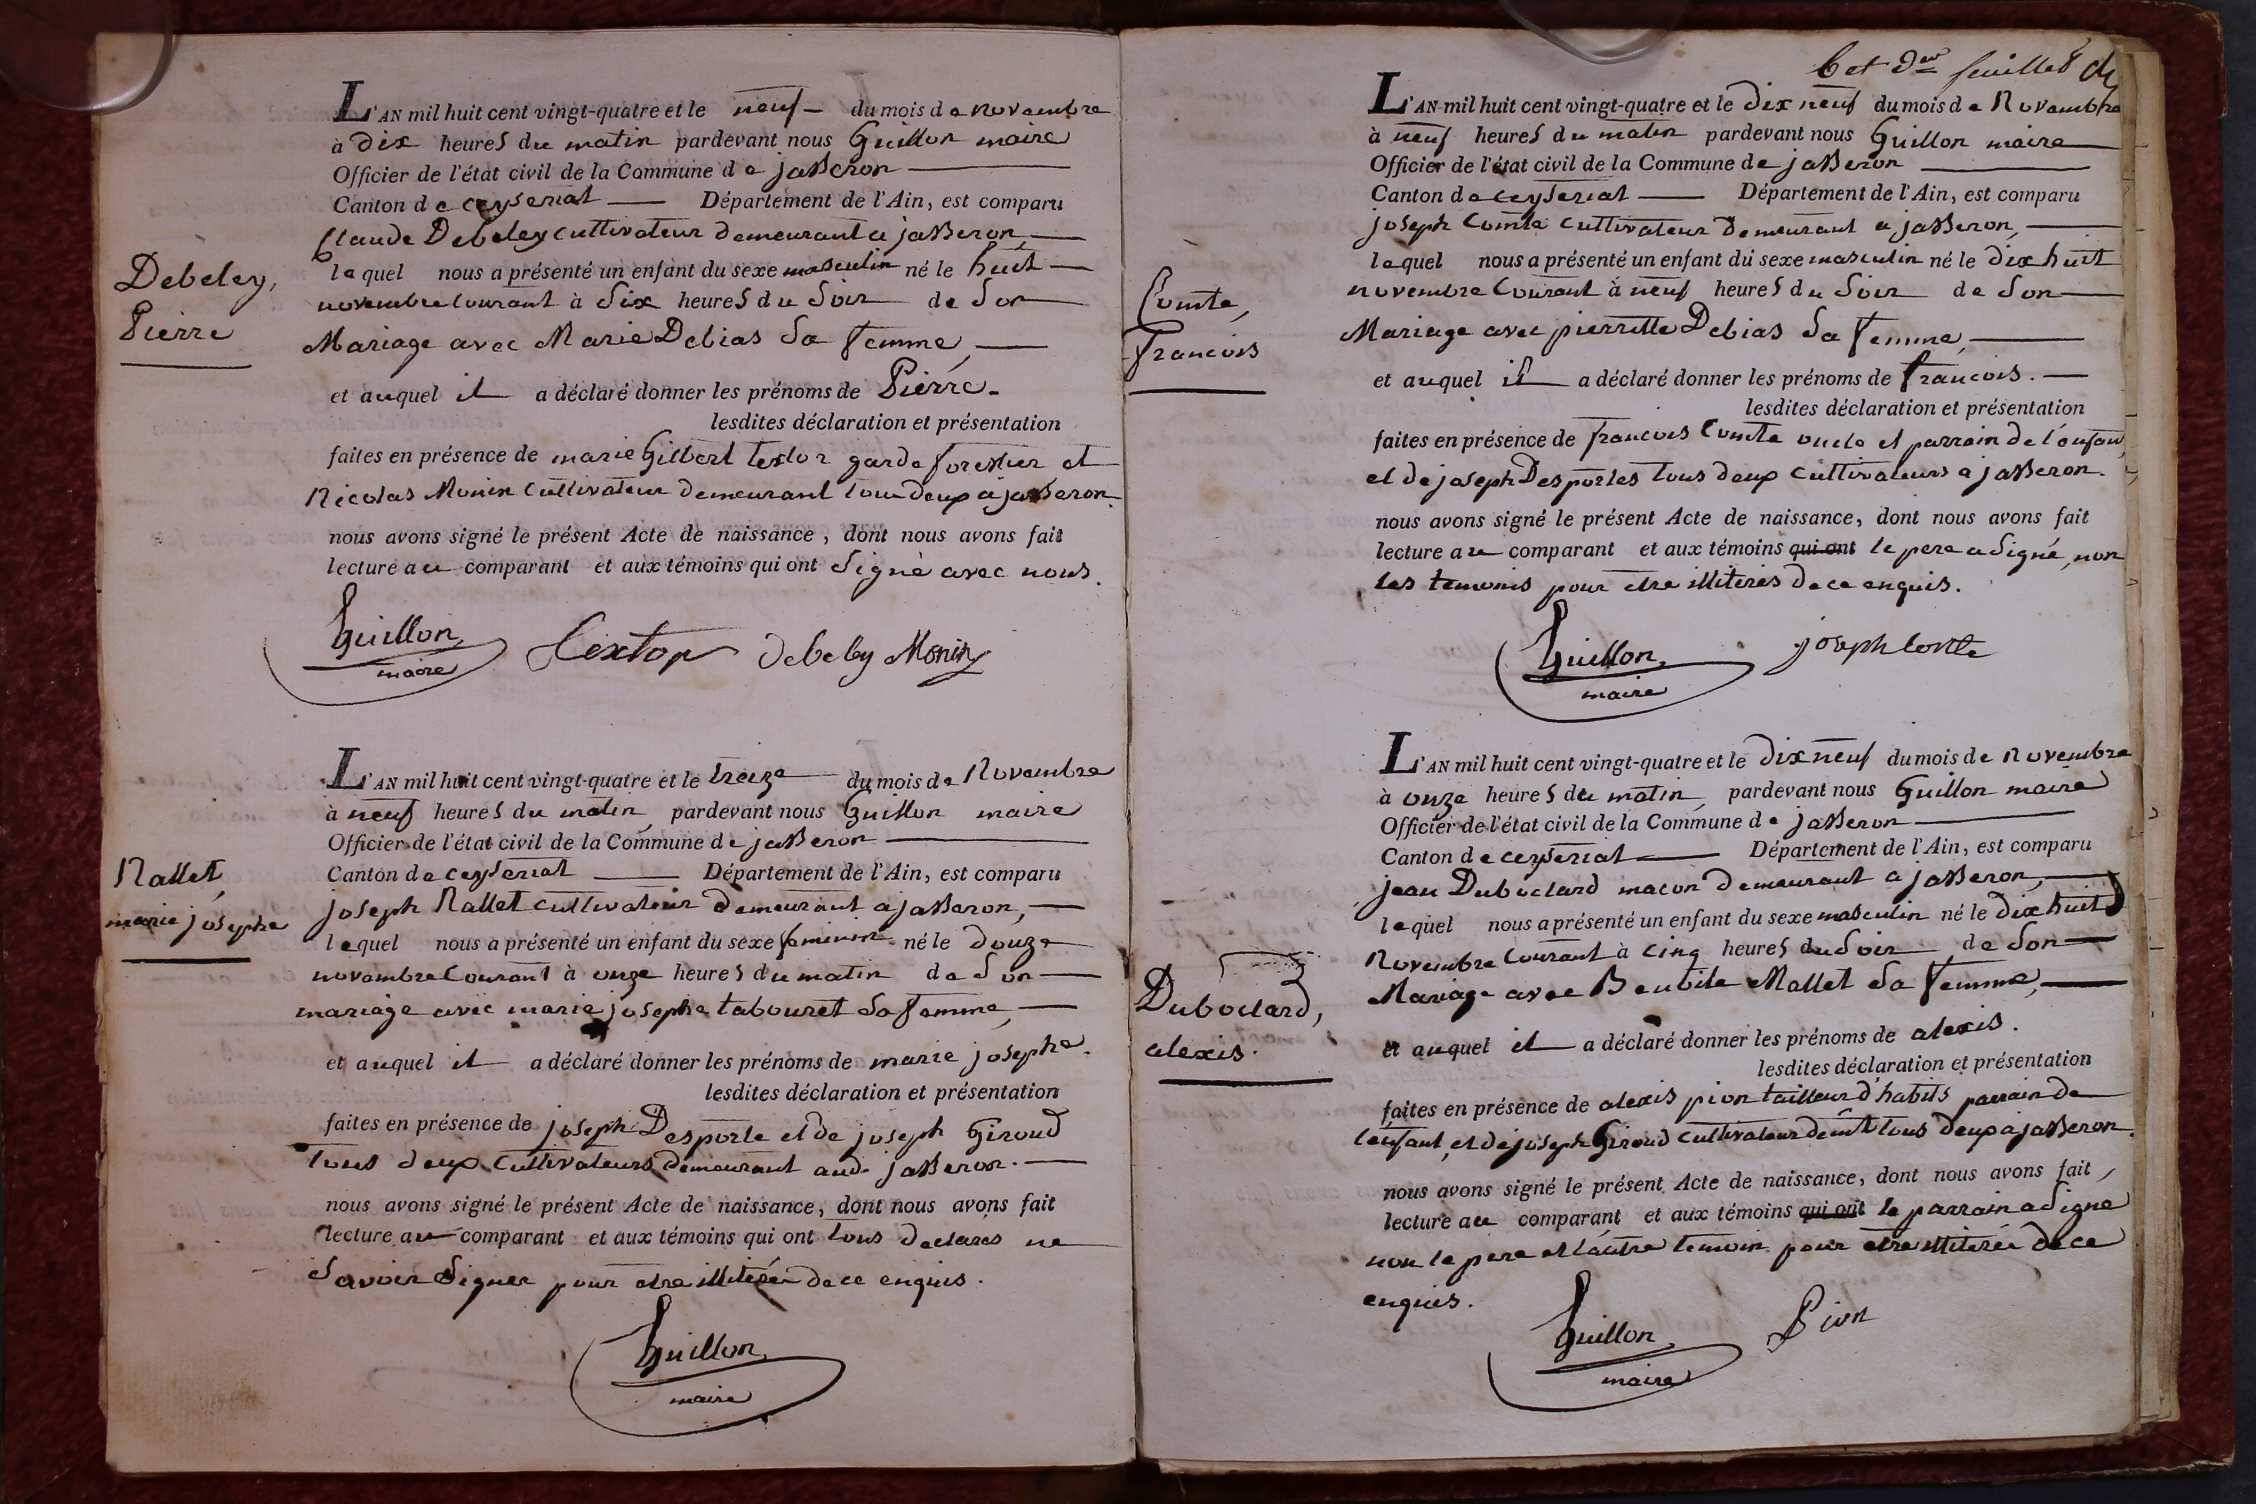 L'AN mil huit cent vingt-quatre et le neuf du mois de novembre
à Dix heures du matin pardevant nous Guillon maire
Officier de l'état civil de la Commune de jasseron
Canton de ceyseriat Département de l'Ain, est comparu
Claude Debeley cultivateur demeurant a jasseron,
lequel nous a présenté un enfant du sexe masculin né le huit
novembre courant à Six heures du Soir de Son
Mariage avec Marie Debias Sa femme,
et auquel il a déclaré donner les prénoms de Pierre.
lesdites déclaration et présentation
faites en présence de marie Gilbert textor garde forestier et
Nicolas Monin cultivateur demeurant tous deux a jasseron.
nous avons signé le présent Acte de naissance, dont nous avons fait
lecture au comparant et aux témoins qui ont Signé avec nous.
Guillon
maire
Textor debeley Monin
Debeley,
Pierre
L'AN mil huit cent vingt-quatre et le treize du mois de Novembre
à neuf heures du matin pardevant nous Guillon maire
Officier de l'état civil de la Commune de jasseron
Canton de ceyseriat Département de l'Ain, est comparu
joseph Nallet cultivateur demeurant a jasseron,
lequel nous a présenté un enfant du sexe feminin né le douze
novembre courant à onze heures du matin de Son
mariage avec marie josephe tabouret Sa femme,
et auquel il a déclaré donner les prénoms de marie josephe.
lesdites déclaration et présentation
faites en présence de joseph Desporte et de joseph Giroud
tous deux cultivateurs demeurant aud. jasseron.
nous avons signé le présent Acte de naissance, dont nous avons fait
lecture au comparant et aux témoins qui ont tous declarés ne
Savoir Signer pour etre illiterés de ce enquis.
Guillon
maire
Nallet,
marie josephe
6 et der feuillet
L'AN mil huit cent vingt-quatre et le Dix neuf du mois de Novembre
à neuf heures du matin pardevant nous Guillon maire
Officier de l'état civil de la Commune de jasseron
Canton de ceyseriat Département de l'Ain, est comparu
joseph Comte cultivateur demeurant a jasseron,
lequel nous a présenté un enfant du sexe masculin né le dix huit
novembre Courant à neuf heures du Soir de Son
Mariage avec pierrette Debias Sa femme,
et auquel il a déclaré donner les prénoms de francois.
lesdites déclaration et présentation
faites en présence de francois Comte oncle et parrain de l'enfant,
et de joseph Desportes tous deux cultivateurs a jasseron.
nous avons signé le présent Acte de naissance, dont nous avons fait
lecture au comparant et aux témoins qui ont le pere a Signé, non
les temoins pour etre illiterés de ce enquis.
Guillon
maire
joseph Comte
Comte,
francois
L'AN mil huit cent vingt-quatre et le dix neuf du mois de Novembre
à onze heures du matin pardevant nous Guillon maire
Officier de l'état civil de la Commune de jasseron
Canton de ceyseriat Département de l'Ain, est comparu
jean Duboclard macon demeurant a jasseron,
lequel nous a présenté un enfant du sexe masculin né le dix huit
Novembre Courant à cinq heures du Soir de Son
Mariage avec Mallet Sa femme,
et auquel il a déclaré donner les prénoms de alexis.
lesdites déclaration et présentation
faites en présence de alexis pion tailleur d'habits parrain de
l'enfant, et de joseph Giroud cultivateur demt tous deux a jasseron.
nous avons signé le présent Acte de naissance, dont nous avons fait,
lecture au comparant et aux témoins qui ont le parrain a Signé
non le pere et l'autre temoin pour etre illiterés de ce
enquis.
Guillon
maire
Pion
Duboclard,
alexis.